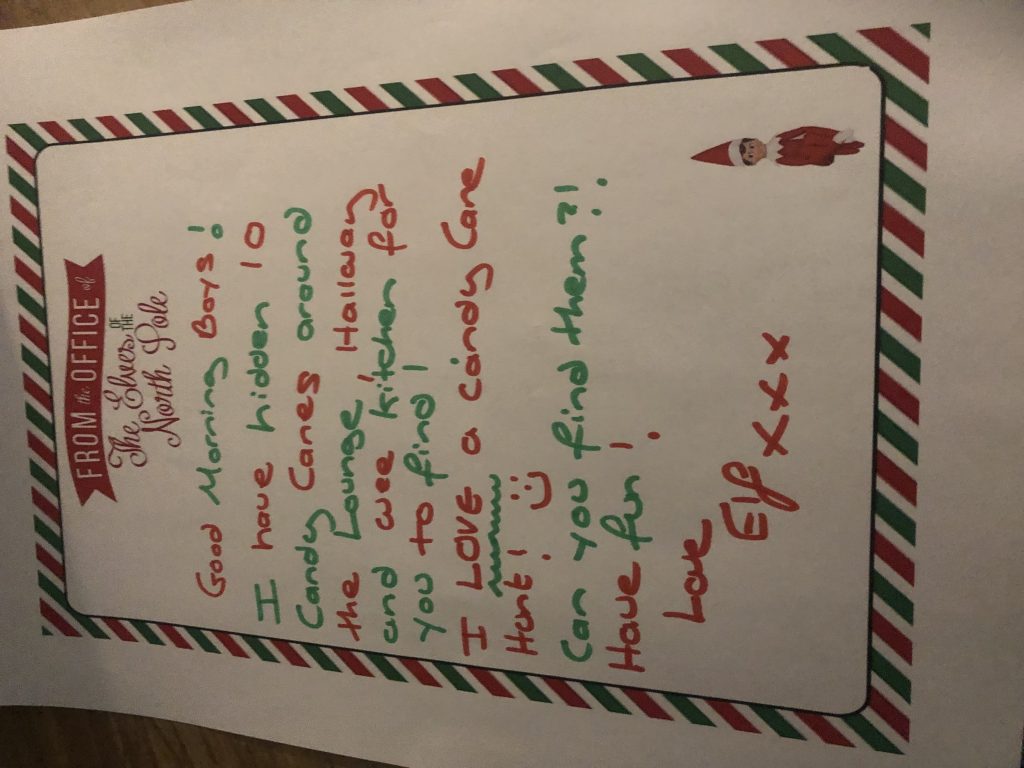 FROM the OFFICE of
The Elves OF THE
North Pole
Good Morning Boys!
I have hidden 10
Candy Canes around
the Lounge, Hallway
and wee kitchen for
you to find!
I LOVE a candy Cane
Hunt! :)
Can you find them?!
Have fun!
Love
Elf xxx